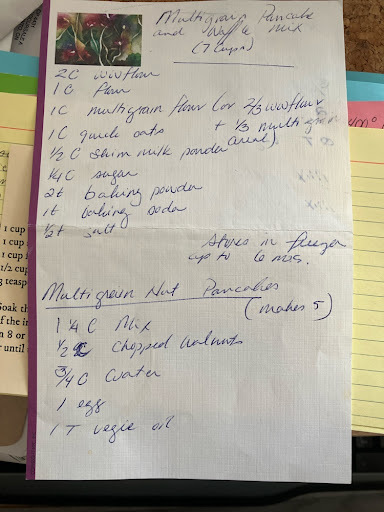 Multigrain Pancake
and Waffle Mix
(7 Cups)
2C wwflour
1C flour
1C multigrain flour (or 2/3 wwflour
+ 1/3 multigrain
cereal)
1C quick oats
1/2 C skim milk powder
1/4 C sugar
2t baking powder
1t baking soda
1/2 t salt
Stores in freezer
up to 6 mos.
Multigrain Nut Pancakes
(makes 5)
1 1/4 C Mix
1/2 C chopped walnuts
3/4 C water
1 egg
1 T vegie oil
1 cup
1 cup
1 cup
1/2 cup
teasp
Soak th
f the in
n 8 or
until